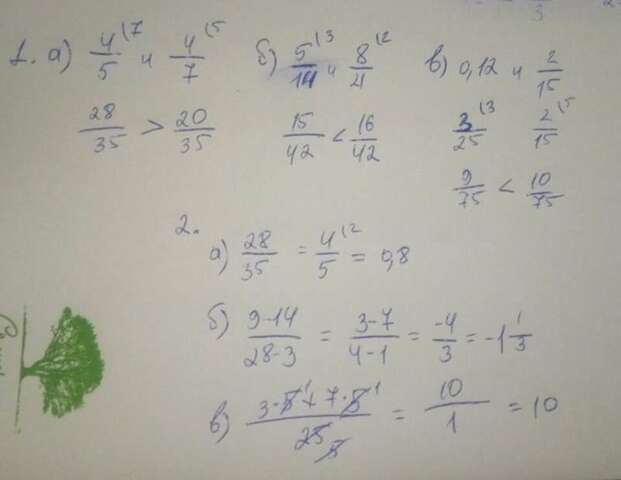 1. а) 4/5 (7 и 4/7 (5 б) 5/14 (3 и 8/21 (2 в) 0,12 и 2/15
28/35 > 20/35 15/42 < 16/42 3/25 (3 2/15 (5
9/75 < 10/75
2.
а) 28/35 = 4/5 (2 = 0,8
б) 9-14/28-3 = 3-7/4-1 = -4/3 = -1 1/3
в) 3·5 1 + 7·5 1/25 5 = 10/1 = 10